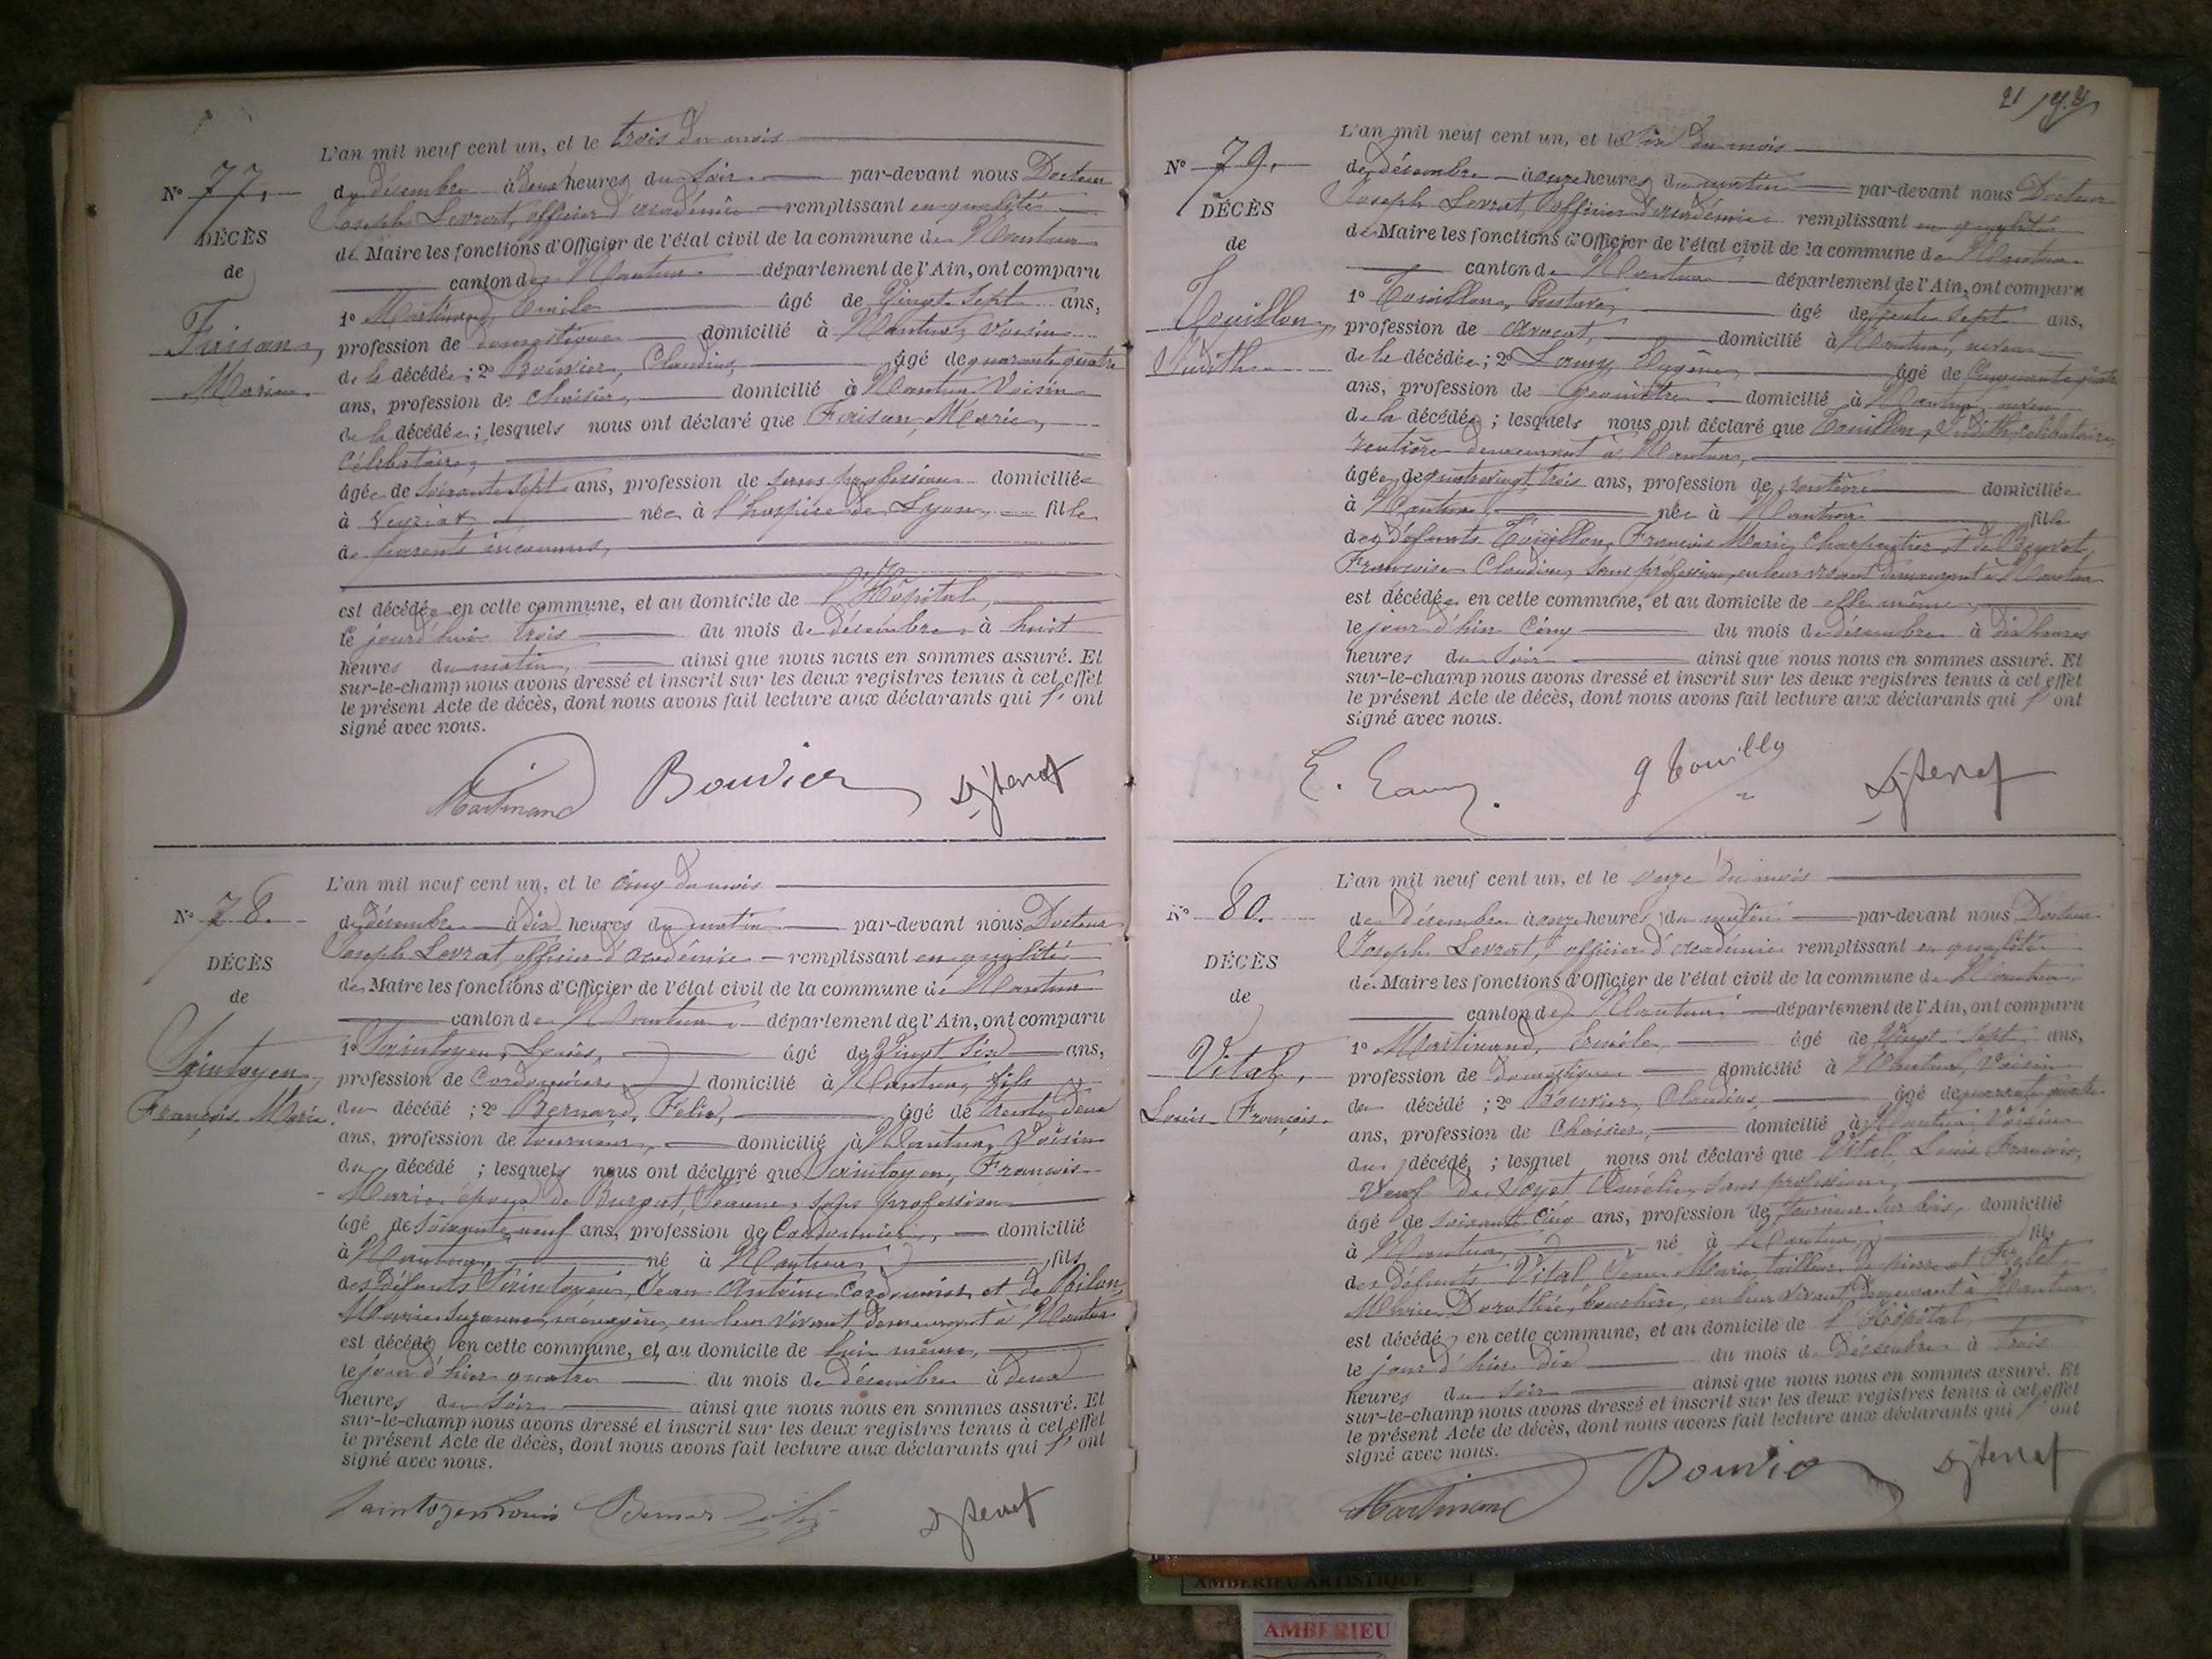 L'an mil neuf cent un, et le trois du mois
N° 77.
de décembre à deux heures du soir par-devant nous Docteur
Joseph Levrat, officier d'académie remplissant en qualité
DÉCÈS
de Maire les fonctions d'Officier de l'état civil de la commune de Nantua
de
canton de Nantua département de l'Ain, ont comparu
1° Martinand, Emile âgé de Vingt-Sept ans,
Faisan,
profession de domestique domicilié à Nantua, voisin
Marie.
de la décédée; 2° Bouvier, Claudius, âgé de quarante quatre
ans, profession de chaisier, domicilié à Nantua Voisin
de la décédée; lesquels nous ont déclaré que Faisan, Marie,
célibataire,
âgée de soixante sept ans, profession de sans profession domiciliée
à Veyriat, née à l'hospice de Lyon, fille
de parents inconnus,
est décédée en cette commune, et au domicile de l'Hôpital,
le jourd'hui trois du mois de décembre à huit
heures du matin, ainsi que nous nous en sommes assuré. Et
sur-le-champ nous avons dressé et inscrit sur les deux registres tenus à cet effet
le présent Acte de décès, dont nous avons fait lecture aux déclarants qui l'ont
signé avec nous.
Martinand Bouvier
L'an mil neuf cent un, et le cinq du mois
N° 78.
de décembre à dix heures du matin par-devant nous Docteur
Joseph Levrat, officier d'académie remplissant en qualité
DÉCÈS
de Maire les fonctions d'Officier de l'état civil de la commune de Nantua
de
canton de Nantua département de l'Ain, ont comparu
Saintoyen,
1° Saintoyen, Louis, âgé de Vingt Six ans,
profession de Cordonnier domicilié à Nantua, fils
François Marie.
du décédé; 2° Bernard, Felix, âgé de trente deux
ans, profession de tourneur, domicilié à Nantua, Voisin
du décédé; lesquels nous ont déclaré que Saintoyen, François
Marie époux de Burgat, Jeanne, sans profession
âgé de soixante neuf ans, profession de Cordonnier, domicilié
à Nantua, né à Nantua, fils
des défunts Saintoyen, Jean Antoine Cordonnier et de
Marie Suzanne, ménagère, en leur vivant demeurant à Nantua
est décédé en cette commune, et au domicile de lui même,
le jour d'hier quatre du mois de décembre à deux
heures du soir ainsi que nous nous en sommes assuré. Et
sur-le-champ nous avons dressé et inscrit sur les deux registres tenus à cet effet
le présent Acte de décès, dont nous avons fait lecture aux déclarants qui l'ont
signé avec nous.
Saintoyen Louis Bernard
21
L'an mil neuf cent un, et le Six du mois
N° 79.
de décembre à onze heures du matin par-devant nous Docteur
DÉCÈS
Joseph Levrat, officier d'académie remplissant en qualité
de Maire les fonctions d'Officier de l'état civil de la commune de Nantua
de
canton de Nantua département de l'Ain, ont comparu
Touillon,
1° Touillon, Gustave, âgé de trente sept ans,
profession de avocat, domicilié à Nantua, neveu
Judith.
de la décédée; 2° Eugène, âgé de Cinquante quatre
ans, profession de Géomètre domicilié à Nantua, neveu
de la décédée; lesquels nous ont déclaré que Touillon, Judith, célibataire,
rentière demeurant à Nantua,
âgée de quatrevingt trois ans, profession de rentière domiciliée
à Nantua, née à Nantua fille
des défunts Touillon, François Marie, Charpentier et de
Françoise Claudine, sans profession, en leur vivant demeurant à Nantua
est décédée en cette commune, et au domicile de elle même,
le jour d'hier cinq du mois de décembre à dix heures
heures du soir ainsi que nous nous en sommes assuré. Et
sur-le-champ nous avons dressé et inscrit sur les deux registres tenus à cet effet
le présent Acte de décès, dont nous avons fait lecture aux déclarants qui l'ont
signé avec nous.
G Touillon
L'an mil neuf cent un, et le onze du mois
N° 80.
de décembre à onze heures du matin par-devant nous Docteur
Joseph Levrat, officier d'académie remplissant en qualité
DÉCÈS
de Maire les fonctions d'Officier de l'état civil de la commune de Nantua
de
canton de Nantua département de l'Ain, ont comparu
Vital,
1° Martinand, Emile, âgé de Vingt-Sept ans,
profession de Domestique domicilié à Nantua, Voisin
Louis François.
du décédé; 2° Bouvier, Claudius, âgé de quarante quatre
ans, profession de Chaisier, domicilié à Nantua Voisin
du décédé; lesquel nous ont déclaré que Vital, Louis François,
Veuf de Amélie, sans profession,
âgé de soixante cinq ans, profession de tourneur sur bois, domicilié
à Nantua, né à Nantua, fils
des défunts Vital, Jean Marie, tailleur de pierre et
Marie Dorothée, bouchère, en leur vivant demeurant à Nantua,
est décédé en cette commune, et au domicile de l'Hôpital,
le jour d'hier dix du mois de Décembre à trois
heures du soir ainsi que nous nous en sommes assuré. Et
sur-le-champ nous avons dressé et inscrit sur les deux registres tenus à cet effet
le présent Acte de décès, dont nous avons fait lecture aux déclarants qui l'ont
signé avec nous.
Martinand Bouvier
AMBERIEU ARTISTIQUE
AMBERIEU